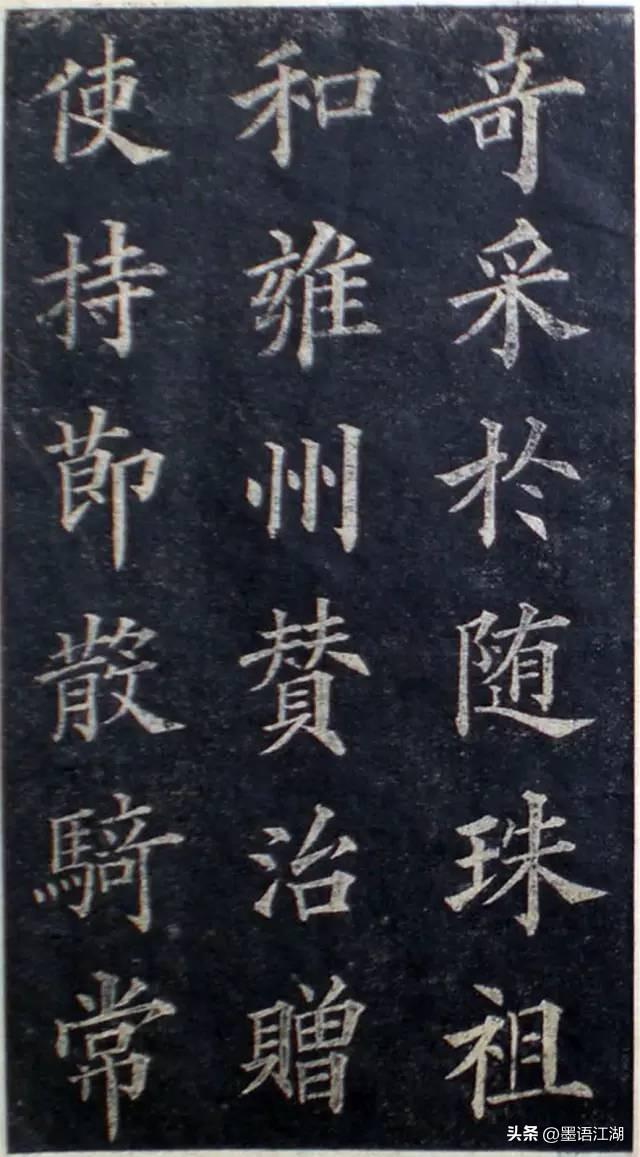 奇采於随珠祖
和雍州賛治贈
使持節散騎常
头条 @墨语江湖